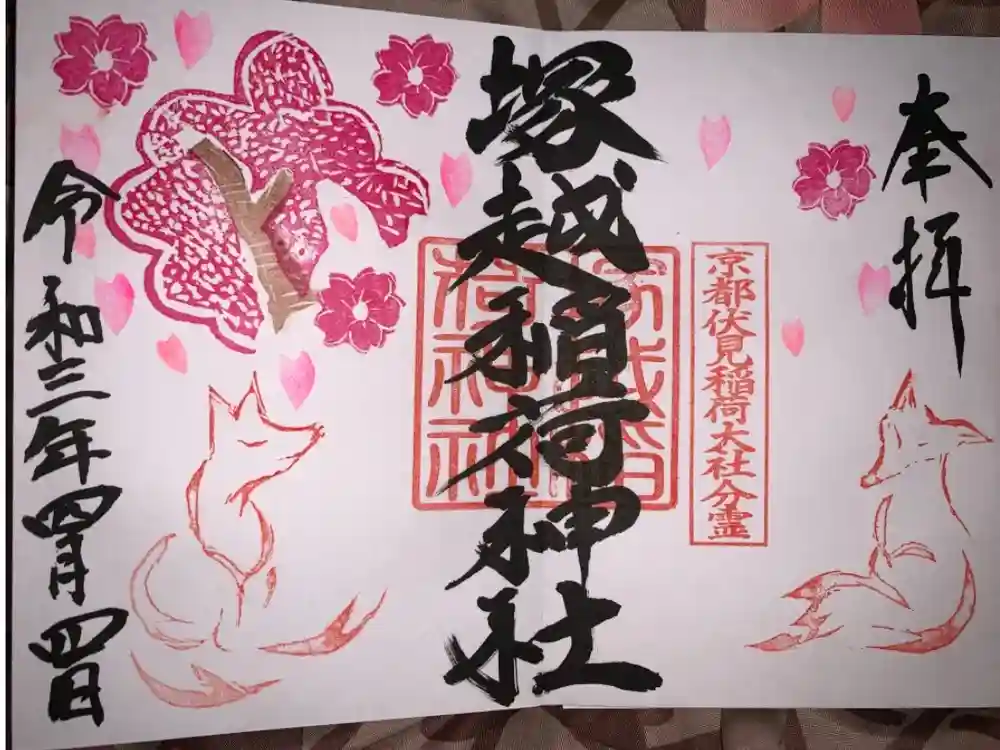 奉拝
京都伏見稲荷大社分霊
塚越稲荷神社
塚越稲荷神社
令和三年四月四日